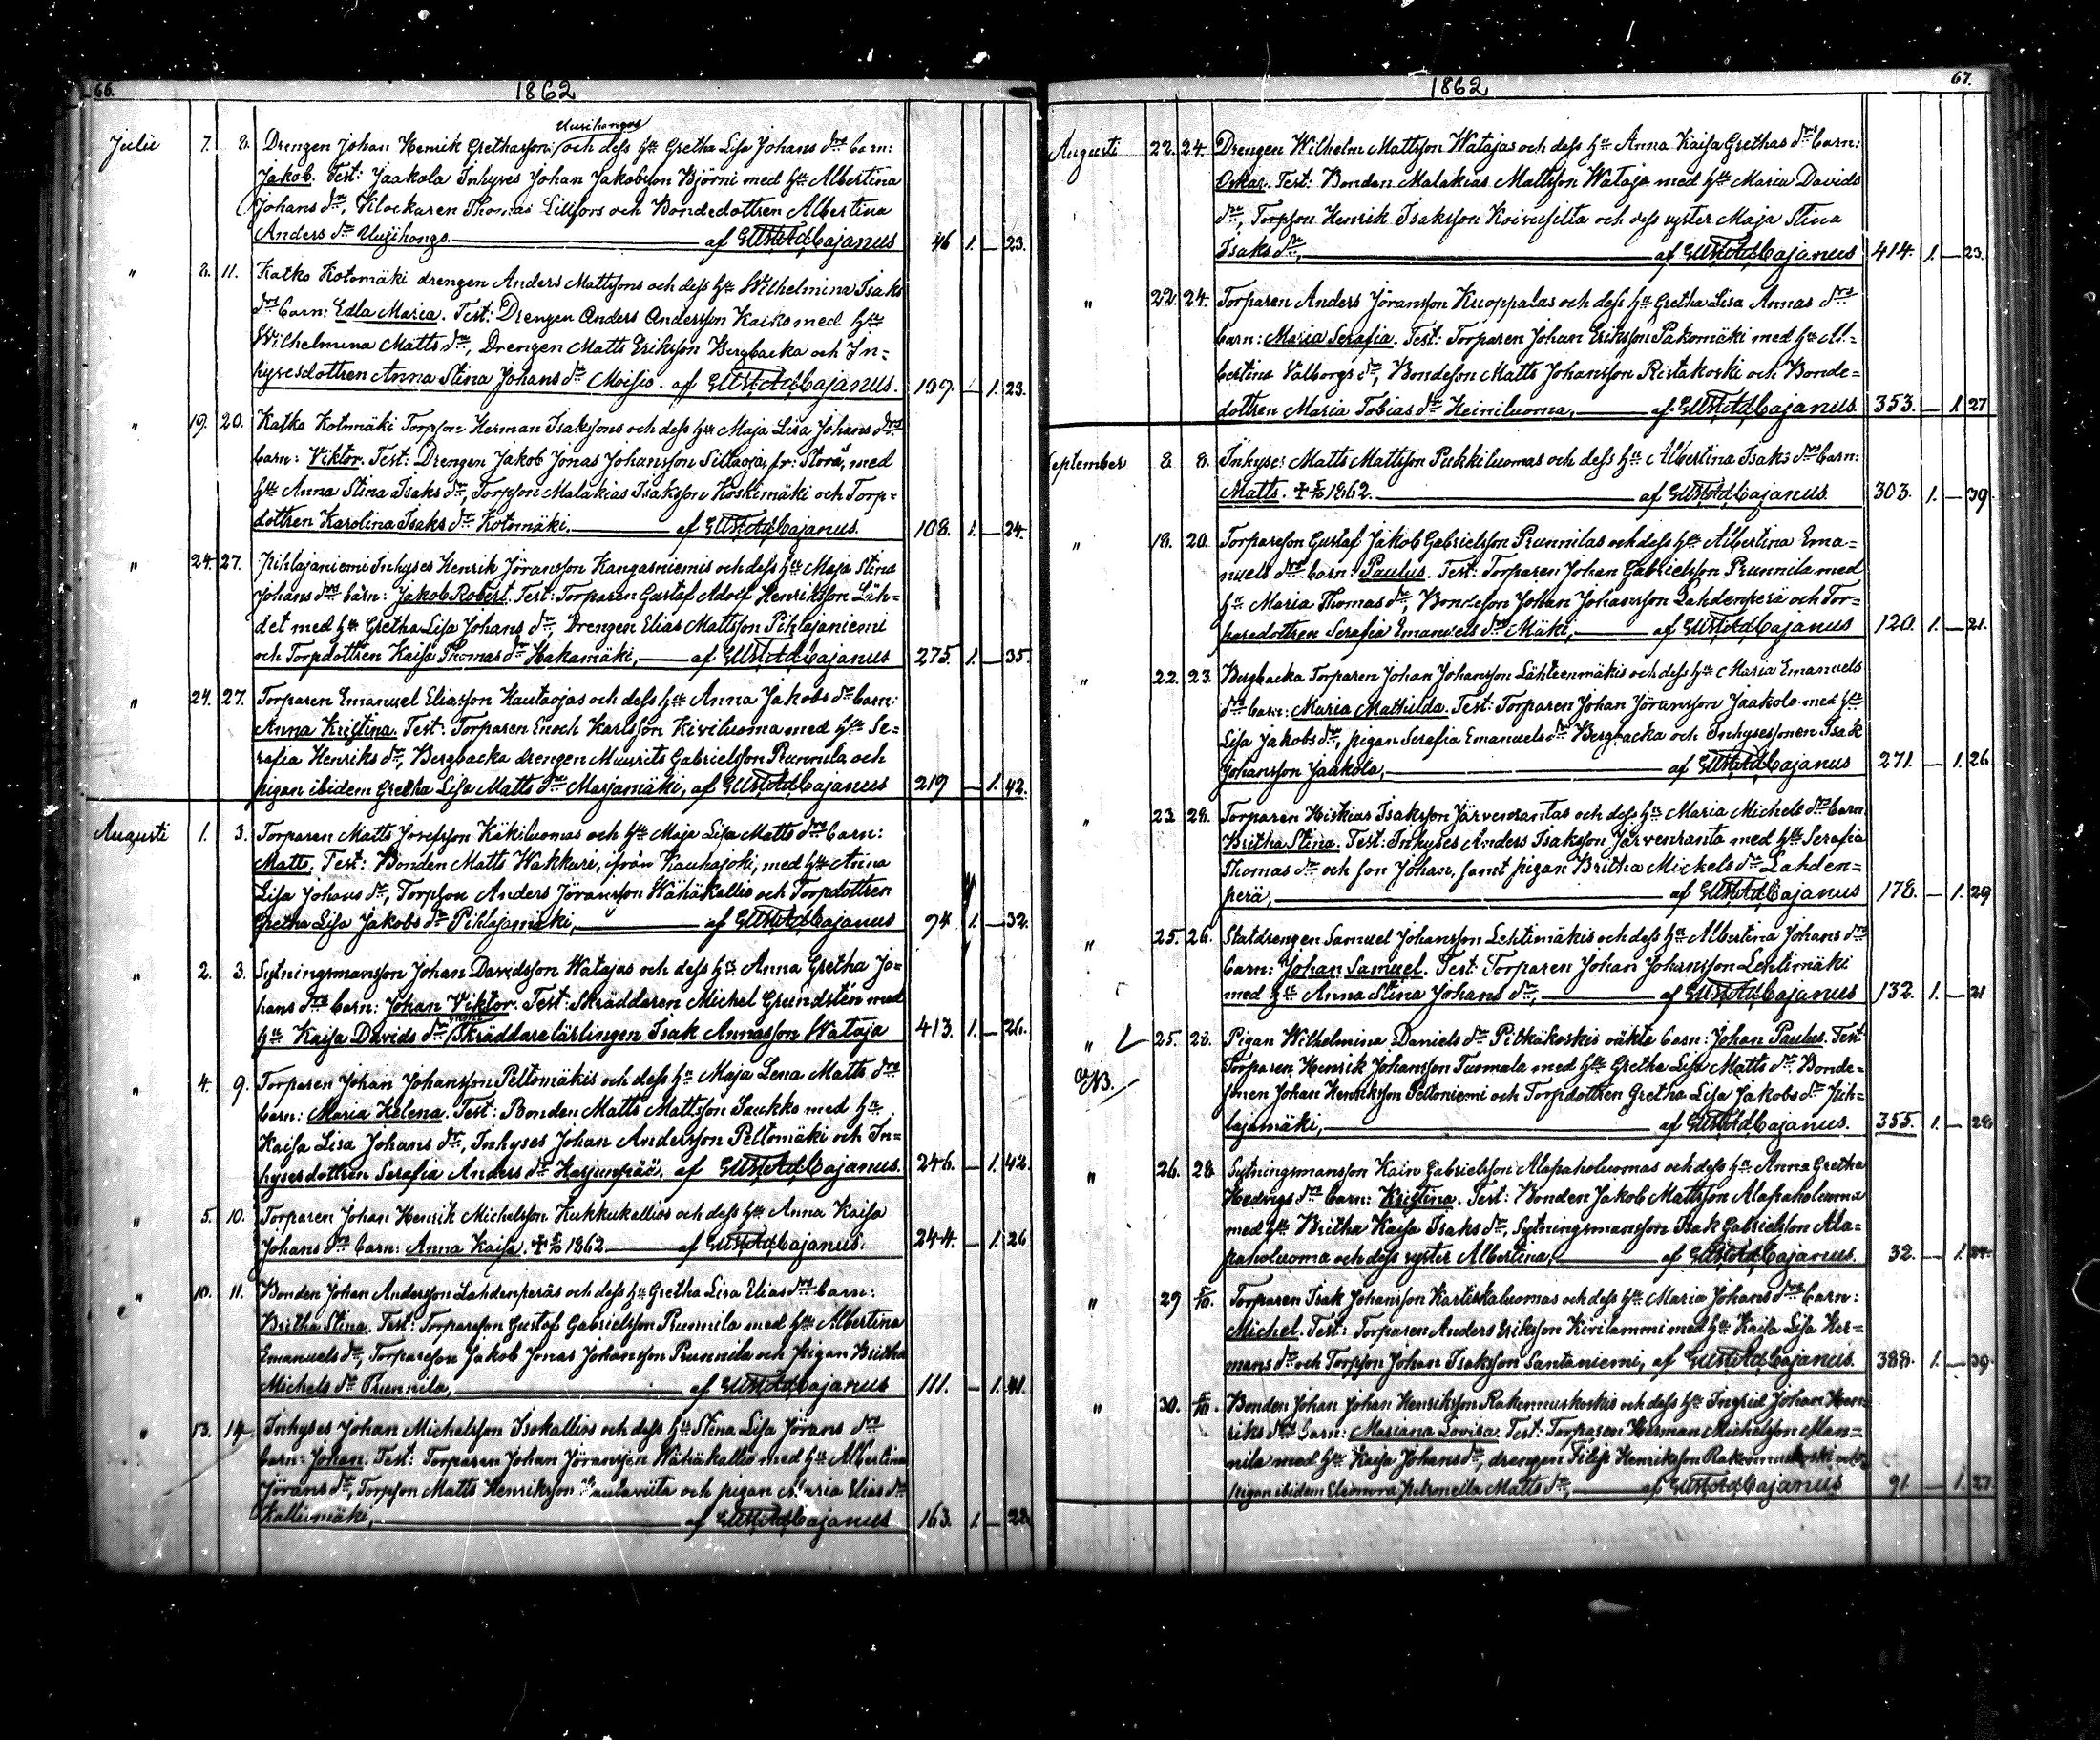 66.
1862
Uusihongos
Julii 7. 8. Drengen Johan Henrik Grethasson och dess hu Gretha Lisa Johans drs barn:
Jakob. Test: Jaakola Inhyses Johan Jakobsson Björni med hu Albertina
Johans dr, Klockaren Thomas Lillfors och Bondedottren Albertina
Anders dr Uusihongo. af Cajanus 46 1. — 23.
" 8. 11. Katko Kotomäki drengen Anders Mattssons och dess hu Wilhelmina Isaks
drs barn: Edla Maria. Test: Drengen Anders Andersson Kaiko med hu
Wilhelmina Matts dr, Drengen Matts Eriksson Bergbacka och In=
hysesdottren Anna Stina Johans dr Moisio. af Cajanus. 109. — 1. 23.
" 19. 20. Katko Kotomäki Torpson Herman Isakssons och dess hu Maja Lisa Johans drs
barn: Viktor. Test: Drengen Jakob Jonas Johansson Siltaoja, fr: Storå, med
hu Anna Stina Isaks dr, Torpson Malakias Isaksson Koskimäki och Torp=
dottren Karolina Isaks dr Kotomäki. af Cajanus. 108. 1. — 24.
" 24. 27. Pihlajaniemi Inhyses Henrik Jöransson Kangasniemis och dess hu Maja Stina
Johans drs barn: Jakob Robert. Test: Torparen Gustaf Adolf Henriksson Läh=
det med hu Gretha Lisa Johans dr, Drengen Elias Mattsson Pihlajaniemi
och Torpdottren Kaisa Thomas dr Hakamäki, af Cajanus 275. 1. — 35.
" 24. 27. Torparen Emanuel Eliasson Kautaojas och dess hu Anna Jakobs dr barn:
Anna Kristina. Test: Torparen Enoch Karlsson Kiviluoma med hu Se=
rafia Henriks dr, Bergbacka drengen Muurits Gabrielsson Prunnila och
pigan ibidem Gretha Lisa Matts dr Marjamäki, af Cajanus 219 — 1. 42.
Augusti 1. 3. Torparen Matts Josefsson Käkiluomas och hu Maja Lisa Matts drs barn:
Matts. Test: Bonden Matts Wakkuri, från Kauhajoki, med hu Anna
Lisa Johans dr, Torpson Anders Jöransson Wähäkallio och Torpdottren
Gretha Lisa Jakobs dr Pihlajamäki, af Cajanus 94 1. — 32.
" 2. 3. Sytningsmansson Johan Davidsson Watajas och dess hu Anna Gretha Jo=
hans drs barn: Johan Viktor. Test: Skräddaren Michel Grundsten med
hu Kaisa Davids dr Skräddarelärlingen Isak Annasson Wataja 413. 1. — 26.
" 4. 9. Torparen Johan Johansson Peltomäkis och dess hu Maja Lena Matts drs
barn: Maria Helena. Test: Bonden Matts Mattsson Saukko med hu
Kaisa Lisa Johans dr, Inhyses Johan Andersson Peltomäki och In=
hysesdottren Serafia Anders dr Harjunpää, af Cajanus. 246. — 1. 42.
" 5. 10. Torparen Johan Henrik Michelsson Kukkukallios och dess hu Anna Kaisa
Johans drs barn: Anna Kaisa. 1862 af Cajanus. 244. — 1. 26
" 10. 11. Bonden Johan Andersson Lahdenperäs och dess hu Gretha Lisa Elias drs barn:
Britha Stina. Test: Torpareson Gustaf Gabrielsson Prunnila med hu Albertina
Emanuels dr, Torpareson Jakob Jonas Johansson Prunnila och pigan Britha
Michels dr Prunnila, af Cajanus 111. — 1. 41.
" 13. 14. Inhyses Johan Michelsson Isokallios och dess hu Stina Lisa Jörans drs
barn: Johan. Test: Torparen Johan Jöransson Wähäkallio med hu Albertina
Jörans dr, Torpson Matts Henriksson och pigan Maria Elias dr
Kalliomäki, af Cajanus 163. 1. — 28.
67.
1862
Augusti 22. 24. Drengen Wilhelm Mattsson Watajas och dess hu Anna Kaisa Grethas drs barn:
Oskar. Test: Bonden Malakias Mattsson Wataja med hu Maria Davids
dr, Torpson Henrik Isaksson Koivusilta och dess syster Maja Stina
Isaks dr, af Cajanus 414. 1. — 23.
" 22. 24. Torparen Anders Jöransson Kuoppalas och dess hu Gretha Lisa Annas drs
barn: Maria Serafia. Test: Torparen Johan Eriksson Pakomäki med hu Al=
bertina Valborgs dr, Bondeson Matts Johansson Ristakoski och Bonde=
dottren Maria Tobias dr Heiniluoma, af Cajanus 353. — 1. 27
September 8. 8. Inhyse: Matts Mattsson Pukkiluomas och dess hu Albertina Isaks drs barn:
Matts. 1862. af Cajanus. 303. 1. — 39.
" 18. 20. Torpareson Gustaf Jakob Gabrielsson Prunnilas och dess hu Albertina Ema=
nuels drs barn: Paulus. Test: Torparen Johan Gabrielsson Prunnila med
hu Maria Thomas dr, Bondeson Johan Johansson Lahdenperä och Tor=
paredottren Serafia Emanuels dr Mäki, af Cajanus 120. 1. — 21.
" 22. 23. Bergbacka Torparen Johan Johansson Lähteenmäkis och dess hu Maria Emanuels
drs barn: Maria Mathilda. Test: Torparen Johan Jöransson Jaakola med hu
Lisa Jakobs dr, pigan Serafia Emanuels dr Bergbacka och Inhysessonen Isak
Johansson Jaakola, af Cajanus 271. — 1. 26
" 23 28. Torparen Hiskias Isaksson Järvenrantas och dess hu Maria Michels drs barn
Britha Stina. Test: Inhyses Anders Isaksson Järvenranta med hu Serafia
Thomas dr och son Johan, samt pigan Britha Mickels dr Lahden=
perä, af Cajanus 178. — 1. 29
" 25. 26. Statdrengen Samuel Johansson Lehtimäkis och dess hu Albertina Johans drs
barn: Johan Samuel. Test: Torparen Johan Johansson Lehtimäki
med hu Anna Stina Johans dr, af Cajanus 132. 1. — 21
" 25. 28. Pigan Wilhelmina Daniels dr Pitkäkoskis oäkta barn: Johan Paulus. Test:
NB. Torparen Henrik Johansson Tuomala med hu Gretha Lisa Matts dr Bonde=
sonen Johan Henriksson Peltoniemi och Torpdottren Gretha Lisa Jakobs dr Pih=
lajamäki, af Cajanus. 355. 1. — 28
" 26. 28 Sytningsmansson Kain Gabrielsson Alapaholuomas och dess hu Anna Gretha
Hedvigs drs barn: Kristina. Test: Bonden Jakob Mattsson Alapaholuoma
med hu Britha Kaisa Isaks dr, Sytningsmansson Isak Gabrielsson Ala=
paholuoma och dess syster Albertina, af Cajanus. 32. — 1.
" 29 5/10. Torparen Isak Johansson Kartiskaluomas och dess hu Maria Johans drs barn:
Michel. Test: Torparen Anders Eriksson Kivilammi med hu Kaisa Lisa Her=
mans dr och Torpson Johan Isaksson Santaniemi, af Cajanus. 388. 1. — 39.
" 30. 5/10. Bonden Johan Johan Henriksson Rakennuskoskis och dess hu Ingrid Johan Hen=
riks drs barn: Mariana Lovisa. Test: Torparen Herman Michelsson Man=
nila med hu Kaisa Johans dr, drengen Filip Henriksson Rakennuskoski och
pigan ibidem Eleonora Petronella Matts dr, af Cajanus 91. — 1. 27.